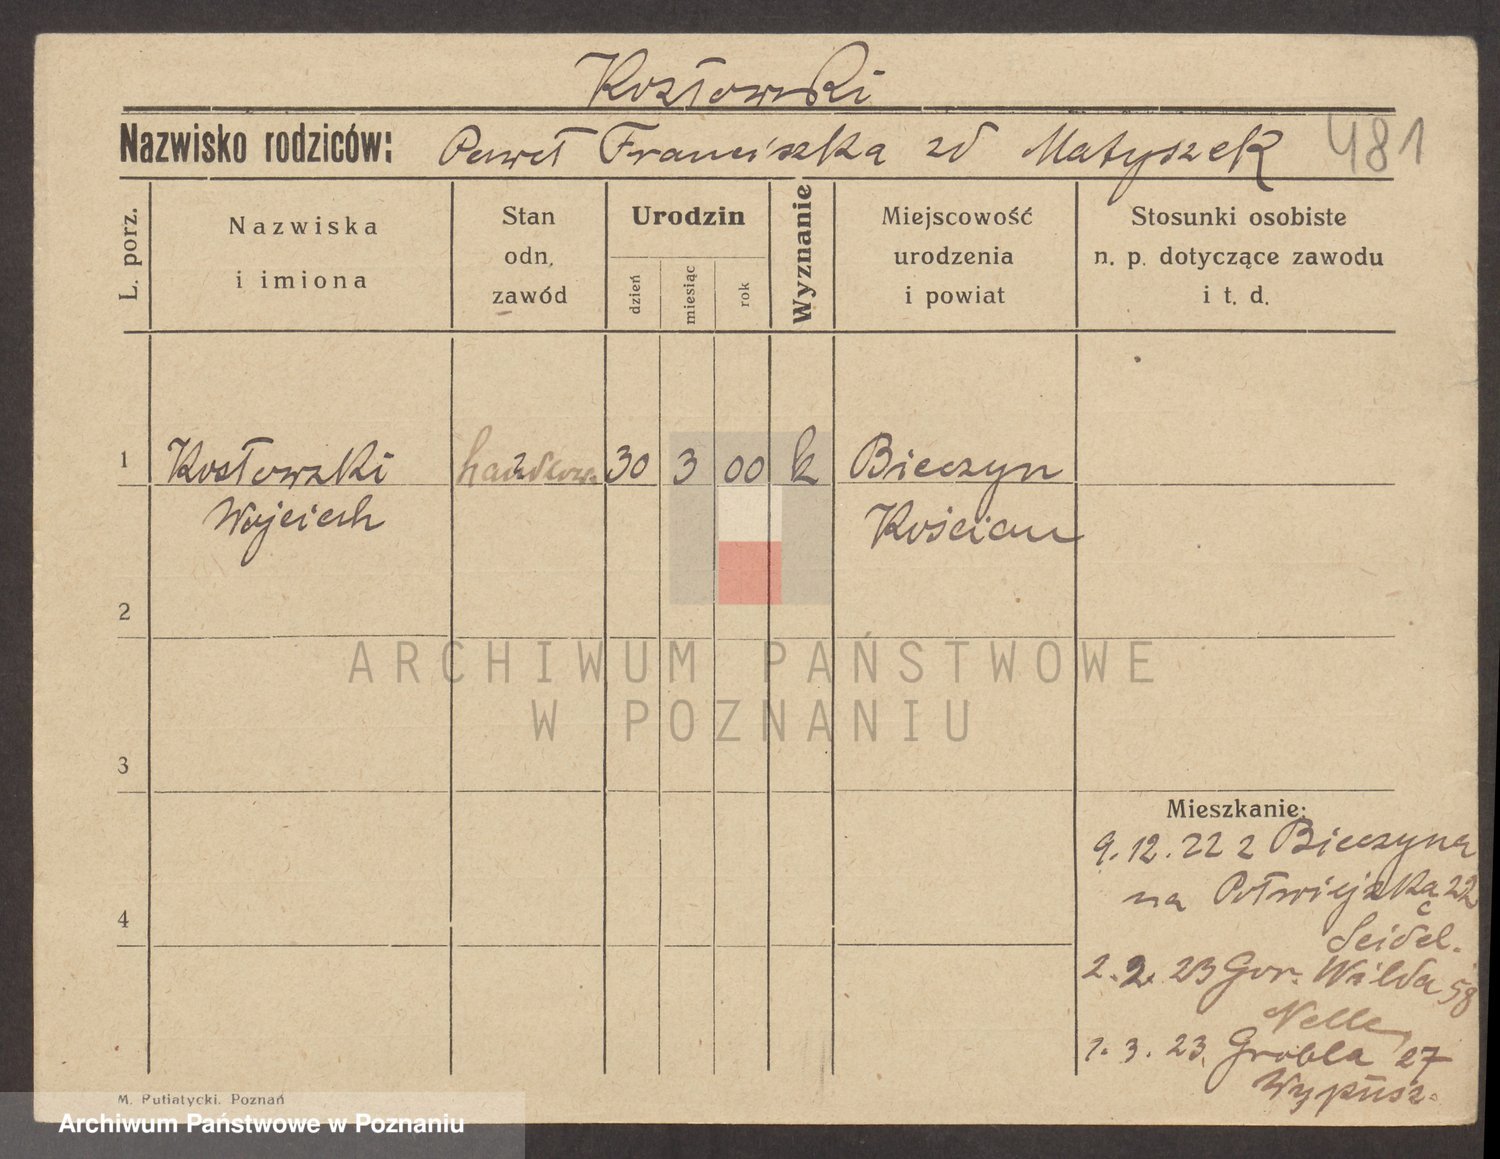 Kozłowski
Nazwisko rodziców: Paweł Franciszka zd Matyszek 481
L. porz.
Nazwiska
i imiona
Stan
odn.
zawód
Urodzin
dzień
miesiąc
rok
Wyznanie
Miejscowość
urodzenia
i powiat
Stosunki osobiste
n. p. dotyczące zawodu
i t. d.
1 Kozłowski handlow. 30 3 00 k Bieczyn
Wojciech Kościan
2
ARCHIWUM PAŃSTWOWE
W POZNANIU
3
Mieszkanie:
9.12.22 z Bieczyna
na Półwiejska 22
Seidel.
4
2.2.23 Gór. Wilda 58
Nelle
1.3.23. Grobla 27
M. Putiatycki. Poznań
Archiwum Państwowe w Poznaniu